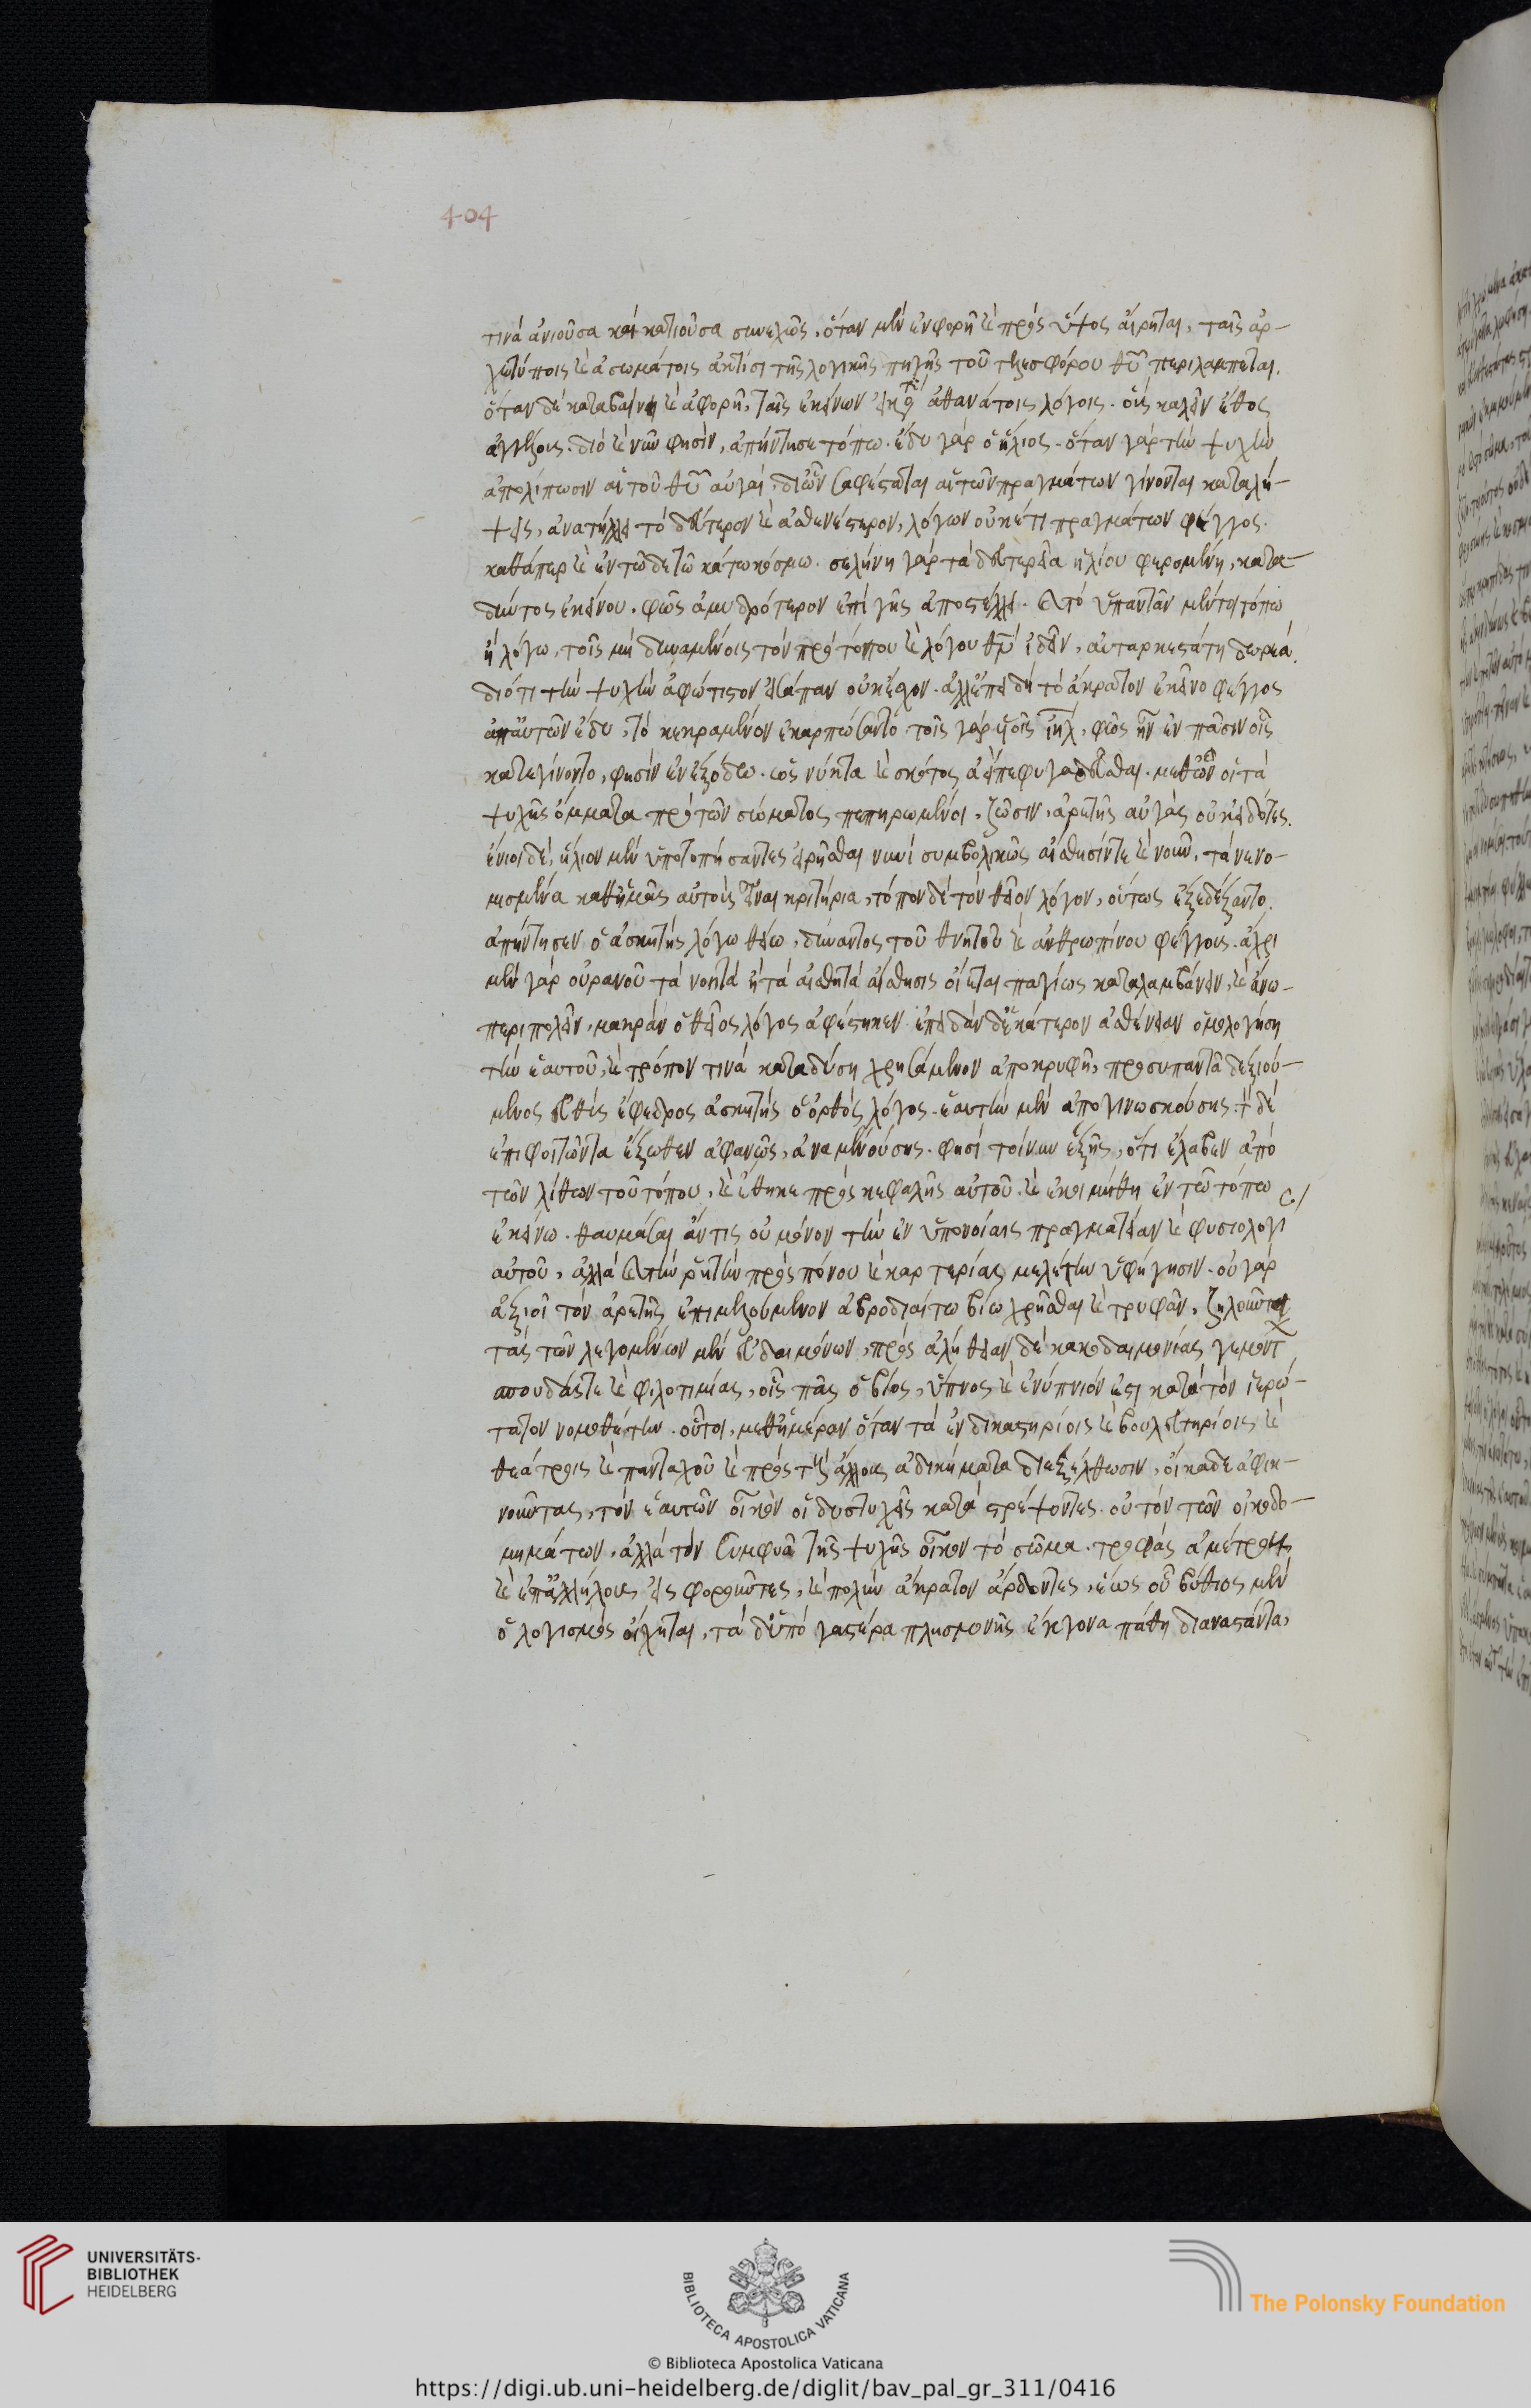 404
τινὰ ἀνιοῦσα καὶ κατιοῦσα συνεχῶς, ὅταν μὲν εὐφορῇ καὶ πρὸς ὕψος αἴρηται, ταῖς ἀρ-
χετύποις καὶ ἀσωμάτοις ἀκτῖσι τῆς λογικῆς πηγῆς τοῦ τελεσφόρου θυ περιλάμπεται.
ὅταν δὲ καταβαίνῃ καὶ ἀφορῇ, ταῖς ἐκείνων εἰκόσιν ἀθανάτοις λόγοις. οὓς καλεῖν ἔθος
ἀγγέλους. διὸ καὶ νῦν φησὶν, ἀπήντησε τόπω. ἔδυ γὰρ ὁ ἥλιος. ὅταν γὰρ τὴν ψυχὴν
ἀπολίπωσιν αἱ τοῦ θυ αὐγαὶ, δι' ὧν σαφέσταται αἱ τῶν πραγμάτων γίνονται καταλή-
ψεις, ἀνατέλλει τὸ δεύτερον καὶ ἀσθενέστερον, λόγων οὐκέτι πραγμάτων φέγγος.
καθάπερ καὶ ἐν τῶδε τῶ κάτω κόσμω. σελήνη γὰρ τὰ δευτερεῖα ἡλίου φερομένη, κατα-
δύντος ἐκείνου. φῶς ἀμυδρότερον ἐπὶ γῆς ἀποστέλλει. καὶ τὸ ὑπαντᾶν μέντοι τόπω
ἢ λόγω, τοῖς μὴ δυναμένοις τὸν πρὸ τόπου καὶ λόγου θν ἰδεῖν, αὐταρκεστάτη δωρεά.
διότι τὴν ψυχὴν ἀφώτιστον εἰσάπαν οὐκ ἔσχον. ἀλλ' ἐπειδὴ τὸ ἄκρατον ἐκεῖνο φέγγος
ἀπ' αὐτῶν ἔδυ, τὸ κεκραμένον ἐκαρπώσαντο. τοῖς γὰρ υἱοῖς ιηλ, φῶς ἦν ἐν πᾶσιν οἷς
κατεγίνοντο, φησὶν ἐν ἐξόδω. ὡς νύκτα καὶ σκότος ἀεὶ πεφυγαδεῦσθαι. μεθ' ὧν οἱ τὰ
ψυχῆς ὄμματα πρὸ τῶν σώματος πεπηρωμένοι, ζῶσιν, ἀρετῆς αὐγὰς οὐκ εἰδότες.
ἔνιοι δὲ, ἥλιον μὲν ὑποτοπήσαντες εἰρῆσθαι νυνὶ συμβολικῶς αἴσθησίν τε καὶ νοῦν, τὰ νενο-
μισμένα καθ' ἡμᾶς αὐτοὺς εἶναι κριτήρια, τόπον δὲ τὸν θεῖον λόγον, οὕτως ἐξεδέξαντο.
ἀπήντησεν ὁ ἀσκητὴς λόγω θείω, δύναντος τοῦ θνητοῦ καὶ ἀνθρωπίνου φέγγους. ἄχρι
μὲν γὰρ οὐρανοῦ τὰ νοητὰ ἢ τὰ αἰσθητὰ αἴσθησις οἴεται παγίως καταλαμβάνειν, καὶ ἄνω-
περιπολεῖν, μακρὰν ὁ θεῖος λόγος ἀφέστηκεν. ἐπειδὰν δὲ ἑκάτερον ἀσθένειαν ὁμολογήση
τὴν ἑαυτοῦ, καὶ τρόπον τινὰ καταδύση χρησάμενον ἀποκρυφῇ, προσυπαντᾶ δεξιού-
μενος εὐθὺς ἔφεδρος ἀσκητὴς ὁ ὀρθὸς λόγος. ἑαυτὴν μὲν ἀπογινωσκούσης ψ δὲ
ἐπιφοιτῶντα ἔξωθεν ἀφανῶς, ἀναμενούσης. φησὶ τοίνυν ἑξῆς, ὅτι ἔλαβεν ἀπὸ
τῶν λίθων τοῦ τόπου, καὶ ἔθηκε πρὸς κεφαλῆς αὐτοῦ. καὶ ἐκοιμήθη ἐν τῶ τόπω
ἐκείνω. θαυμάσαι ἄν τις οὐ μόνον τὴν ἐν ὑπονοίαις πραγματείαν καὶ φυσιολογι
αὐτοῦ, ἀλλὰ καὶ τὴν ῥητὴν πρὸς πόνου καὶ καρτερίας μελέτην ὑφήγησιν. οὐ γὰρ
ἀξιοῖ τὸν ἀρετῆς ἐπιμελούμενον ἁβροδιαίτω βίω χρῆσθαι καὶ τρυφᾶν, ζηλοῦντα
τὰς τῶν λεγομένων μὲν εὐδαιμόνων, πρὸς ἀλήθειαν δὲ κακοδαιμονίας γεμόντ
σπουδάς τε καὶ φιλοτιμίας, οἷς πᾶς ὁ βίος, ὕπνος καὶ ἐνύπνιόν ἐστι κατὰ τὸν ἱερώ-
τατον νομοθέτην. οὗτοι, μεθ' ἡμέραν ὅταν τὰ ἐν δικαστηρίοις καὶ βουλευτηρίοις καὶ
θεάτροις καὶ πανταχοῦ καὶ πρὸς τοὺς ἄλλους ἀδικήματα διεξέλθωσιν, οἴκαδε ἀφικ-
νοῦντας, τὸν ἑαυτῶν οἶκον οἱ δυστυχεῖς καταστρέψοντες. οὐ τὸν τῶν οἰκοδο-
μημάτων, ἀλλὰ τὸν συμφυᾶ τῆς ψυχῆς οἶκον τὸ σῶμα. τροφὰς ἀμέτρους
καὶ ἐπαλλήλους εἰσφοροῦντες, καὶ πολὺν ἄκρατον ἄρδοντες, ἕως οὗ βύθιος μὲν
ὁ λογισμὸς οἴχηται, τὰ δ' ὑπὸ γαστέρα πλησμονῆς ἔκγονα πάθη διαναστάντα,
UNIVERSITÄTS-
BIBLIOTHEK
HEIDELBERG
BIBLIOTECA APOSTOLICA VATICANA
The Polonsky Foundation
© Biblioteca Apostolica Vaticana
https://digi.ub.uni-heidelberg.de/diglit/bav_pal_gr_311/0416